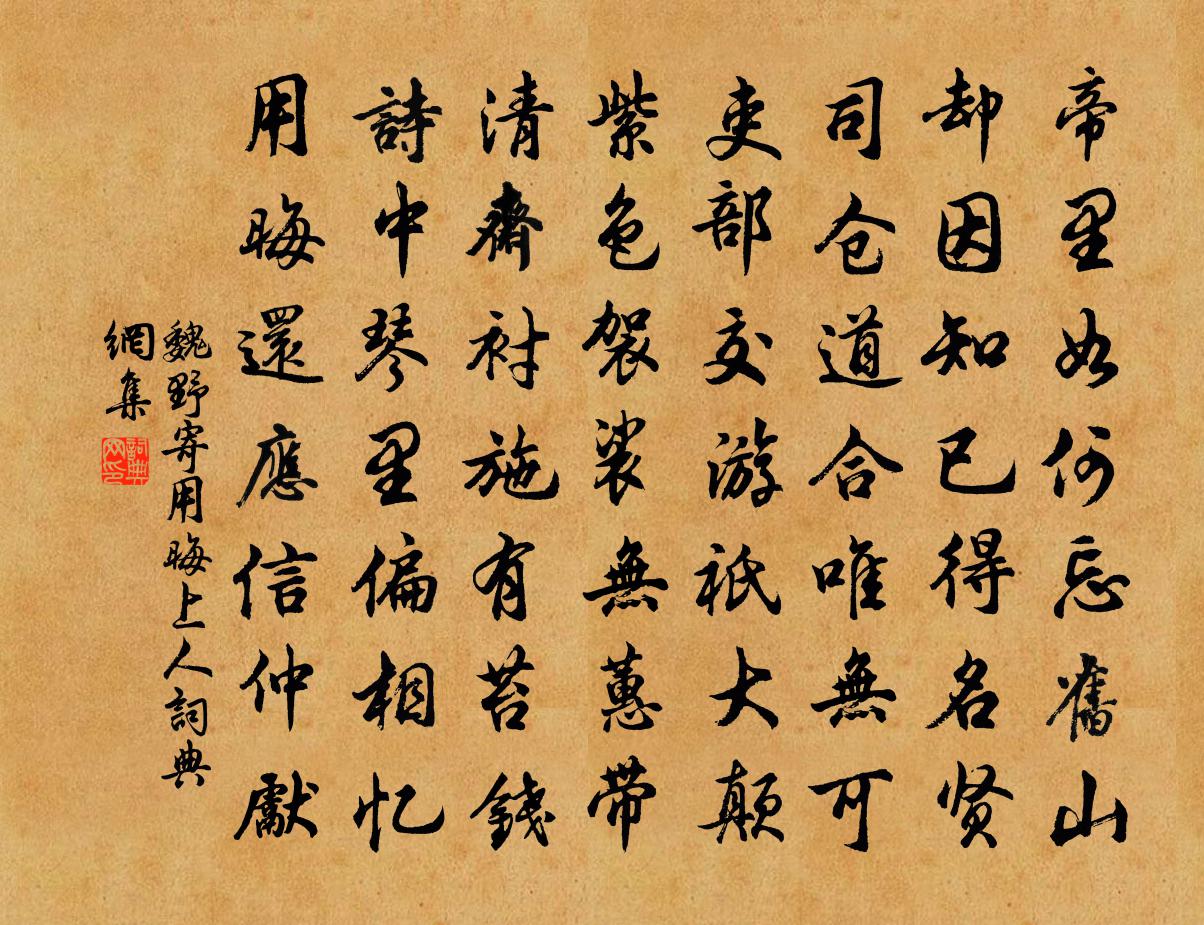 帝里如何忘舊山
却因知已得名贤
司仓道合唯無可
吏部交游祇大颠
紫色袈裟無蕙带
清齋衬施有苔錢
詩中琴里偏相忆
用晦還應信仲獻
魏野寄用晦上人詞典
網集
詞典
网印